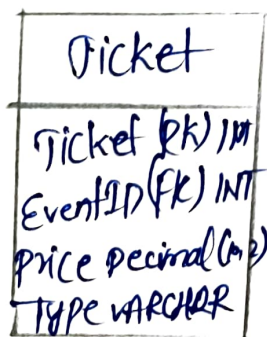 Ticket
Ticket (PK) INT
EventID (FK) INT
Price Decimal (10,2)
TYPE VARCHAR